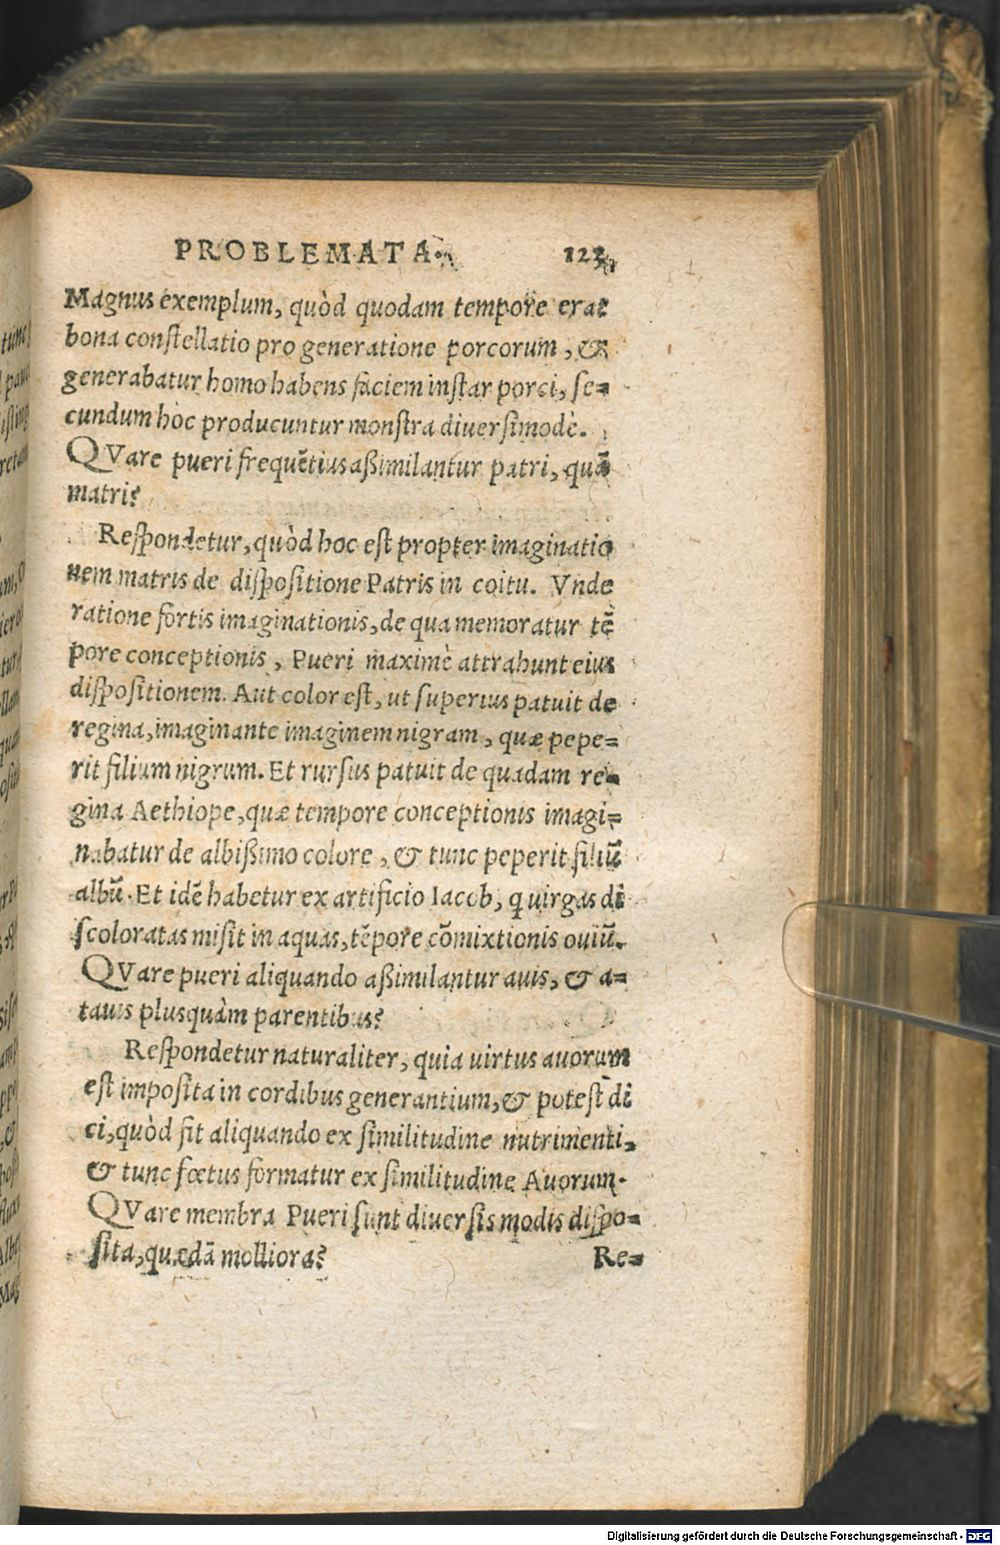 PROBLEMATA. 123
Magnus exemplum, quòd quodam tempore erat
bona constellatio pro generatione porcorum, &
generabatur homo habens faciem instar porci, se=
cundum hoc producuntur monstra diuersimodè.
QVare pueri frequẽtius aßimilantur patri, quã
matri?
Respondetur, quòd hoc est propter imaginatio
nem matris de dispositione Patris in coitu. Vnde
ratione fortis imaginationis, de qua memoratur tẽ
pore conceptionis, Pueri maximè attrahunt eius
dispositionem. Aut color est, ut superius patuit de
regina, imaginante imaginem nigram, quæ pepe=
rit filium nigrum. Et rursus patuit de quadam re=
gina Aethiope, quæ tempore conceptionis imagi=
nabatur de albißimo colore, & tunc peperit filiũ
albũ. Et idẽ habetur ex artificio Iacob, q uirgas di
scoloratas misit in aquas, tẽpore cõmixtionis ouiũ.
QVare pueri aliquando aßimilantur auis, & a=
tauis plusquàm parentibus?
Respondetur naturaliter, quia uirtus auorum
est imposita in cordibus generantium, & potest di
ci, quòd sit aliquando ex similitudine nutrimenti,
& tunc fœtus formatur ex similitudine Auorum.
QVare membra Pueri sunt diuersis modis dispo=
sita, quædã molliora?
Re=
tunc
Digitalisierung gefördert durch die Deutsche Forschungsgemeinschaft - DFG